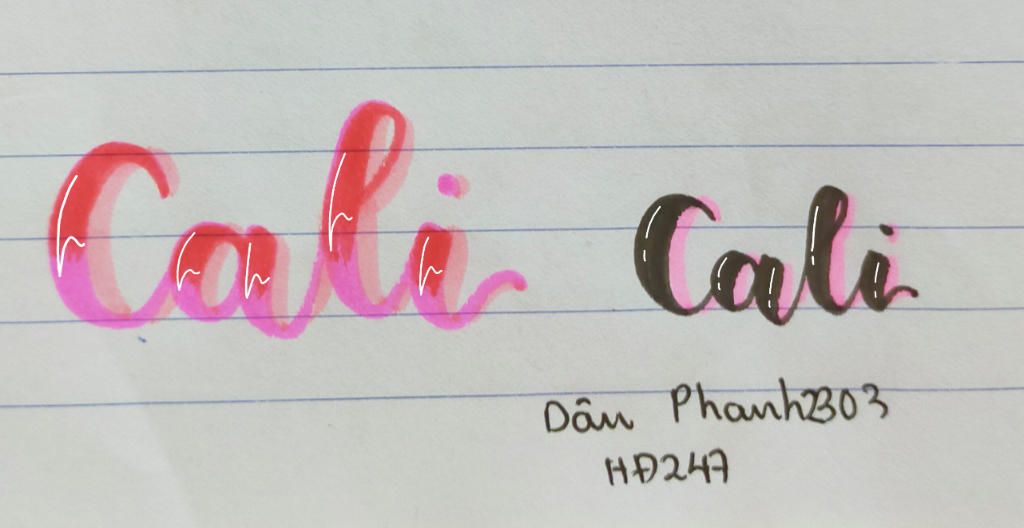 Cali Cali
Dân Phanh2303
HĐ247